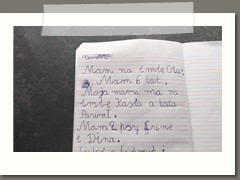 Mam na imię Ola.
Mam 6 lat.
Moja mama ma na
imię Kasia a tata
Paweł.
Mam 2 psy
i Dina.